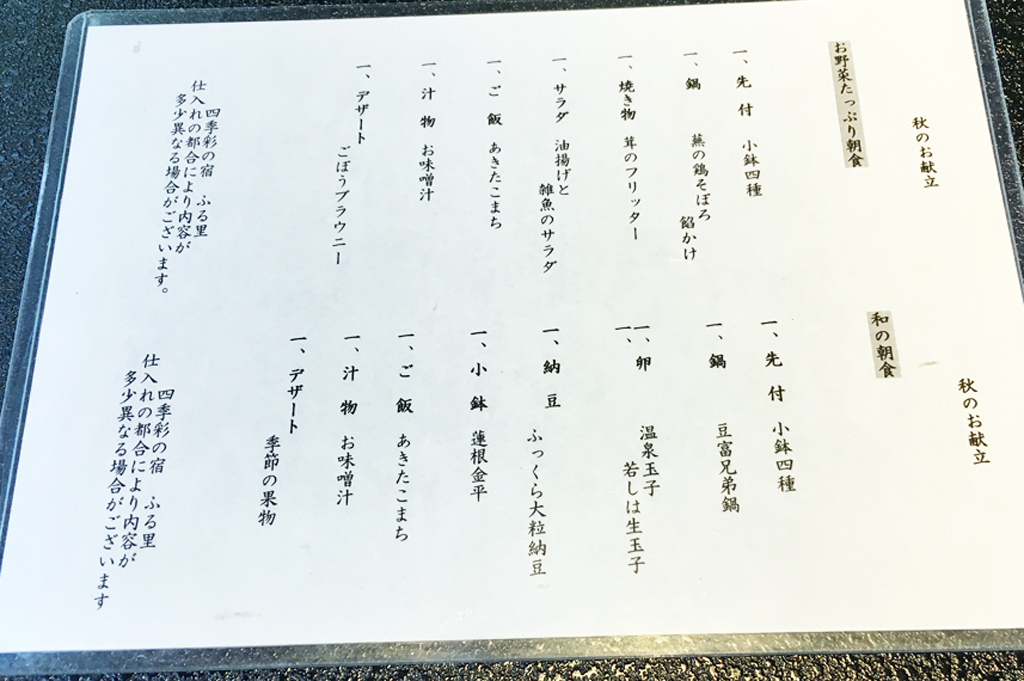 秋のお献立
お野菜たっぷり朝食
一、先 付 小鉢四種
一、鍋 蕪の鶏そぼろ
餡かけ
一、焼き物 茸のフリッター
一、サラダ 油揚げと
雑魚のサラダ
一、ご 飯 あきたこまち
一、汁 物 お味噌汁
一、デザート
ごぼうブラウニー
四季彩の宿 ふる里
仕入れの都合により内容が
多少異なる場合がございます。
秋のお献立
和の朝食
一、先 付 小鉢四種
一、鍋 豆富兄弟鍋
一、卵 温泉玉子
一、 若しは生玉子
一、納 豆 ふっくら大粒納豆
一、小 鉢 蓮根金平
一、ご 飯 あきたこまち
一、汁 物 お味噌汁
一、デザート
季節の果物
四季彩の宿 ふる里
仕入れの都合により内容が
多少異なる場合がございます